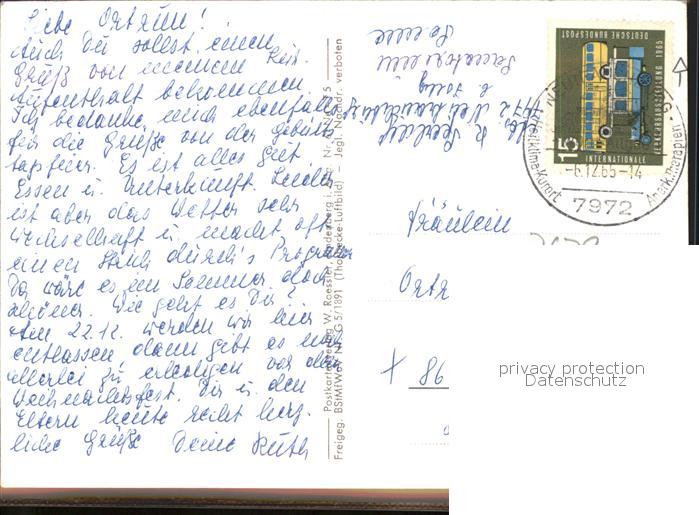 Liebe Ortrun!
Auch Du sollst einen
Gruß von meinem Kur-
Aufenthalt bekommen.
Ich bedanke mich ebenfalls
für die Grüße von der Geburts
tagsfeier. Es ist alles gut.
Essen u. Unterkunft. Leider
ist aber das Wetter sehr
wechselhaft u. macht oft
einen Strich durch's Programm
Da wäre es im Sommer doch
schöner. Wie geht es Dir?
Am 22.12. werden wir hier
entlassen dann gibt es noch
allerlei zu erledigen vor dem
Weihnachtsfest. Dir u. den
Eltern heute recht herz-
liche Grüße Deine Ruth
Postkartenverlag W. Roessler
Freigeg. BStMfWuV Nr. G 5/1891 (Thorbecke-Luftbild) – Jegl. Nachdr. verboten
7972
Sanatorium
Sonne
DEUTSCHE BUNDESPOST
INTERNATIONALE
VERKEHRSAUSSTELLUNG 1965
15
-6.12.65-14
Heilklima-Kurort
7972
Fräulein
Ortr
86
privacy protection
Datenschutz